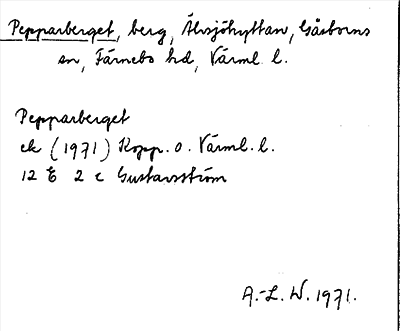 Pepparberget, berg, Älvsjöhyttan, Gåsborns
sn, Färnebo hd, Värml. l.
Pepparberget
ek (1971) Kopp. o. Värml. l.
12 E 2 c Gustavsström
A.-L. W. 1971.